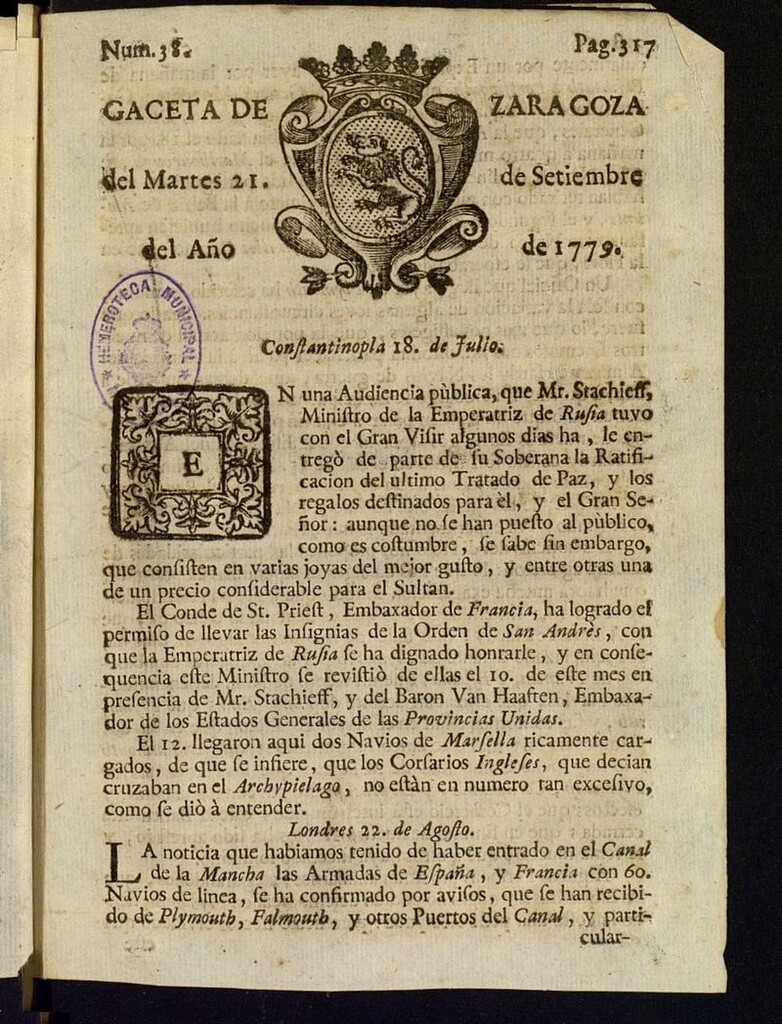 Num. 38.
Pag. 317
GACETA DE ZARAGOZA
del Martes 21. de Setiembre
del Año de 1779.
HEMEROTECA MUNICIPAL
Conſtantinopla 18. de Julio.
EN una Audiencia pùblica, que Mr. Stachieff,
Miniſtro de la Emperatriz de Ruſia tuvo
con el Gran Viſir algunos dias ha, le en-
tregò de parte de ſu Soberana la Ratifi-
cacion del ultimo Tratado de Paz, y los
regalos deſtinados para èl, y el Gran Se-
ñor: aunque no ſe han pueſto al pùblico,
como es coſtumbre, ſe ſabe ſin embargo,
que conſiſten en varias joyas del mejor guſto, y entre otras una
de un precio conſiderable para el Sultan.
El Conde de St. Prieſt, Embaxador de Francia, ha logrado el
permiſo de llevar las Inſignias de la Orden de San Andrès, con
que la Emperatriz de Ruſia ſe ha dignado honrarle, y en conſe-
quencia eſte Miniſtro ſe reviſtiò de ellas el 10. de eſte mes en
preſencia de Mr. Stachieff, y del Baron Van Haaften, Embaxa-
dor de los Eſtados Generales de las Provincias Unidas.
El 12. llegaron aqui dos Navios de Marſella ricamente car-
gados, de que ſe infiere, que los Corſarios Ingleſes, que decian
cruzaban en el Archypielago, no eſtàn en numero tan exceſivo,
como ſe diò à entender.
Londres 22. de Agoſto.
LA noticia que habiamos tenido de haber entrado en el Canal
de la Mancha las Armadas de Eſpaña, y Francia con 60.
Navios de linea, ſe ha confirmado por aviſos, que ſe han recibi-
do de Plymouth, Falmouth, y otros Puertos del Canal, y parti-
cular-